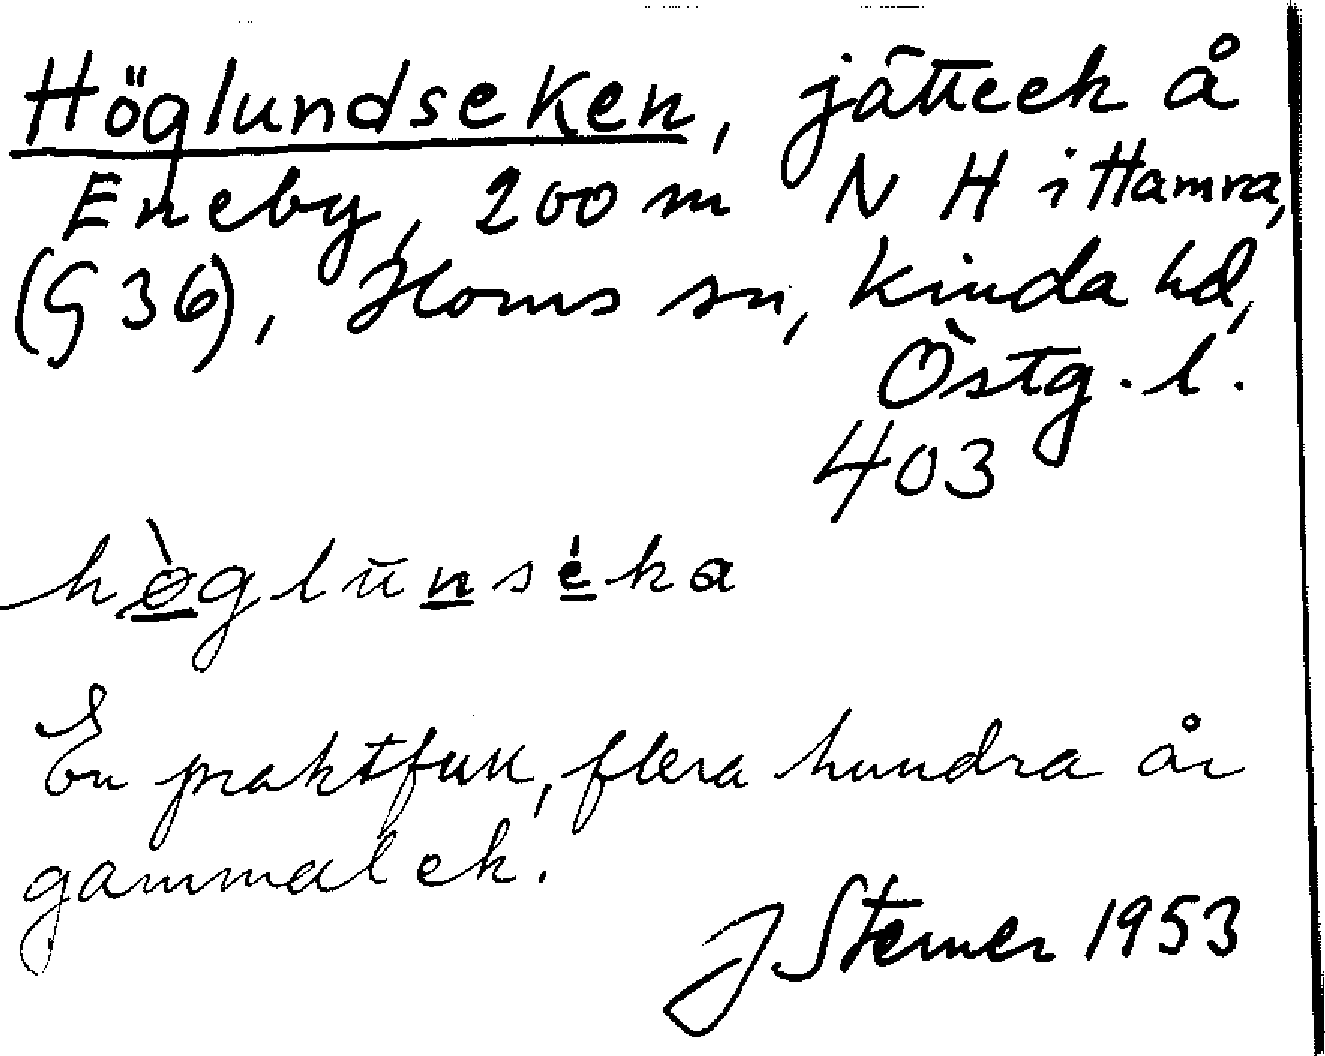 Höglundseken, jätteek å
Eneby, 200 m N H i Hamra,
(G 36), Horns sn, Kinda hd,
Östg. l.
403
hø̀glūnséka
En praktfull, flera hundra år
gammal ek.
J Sterner 1953